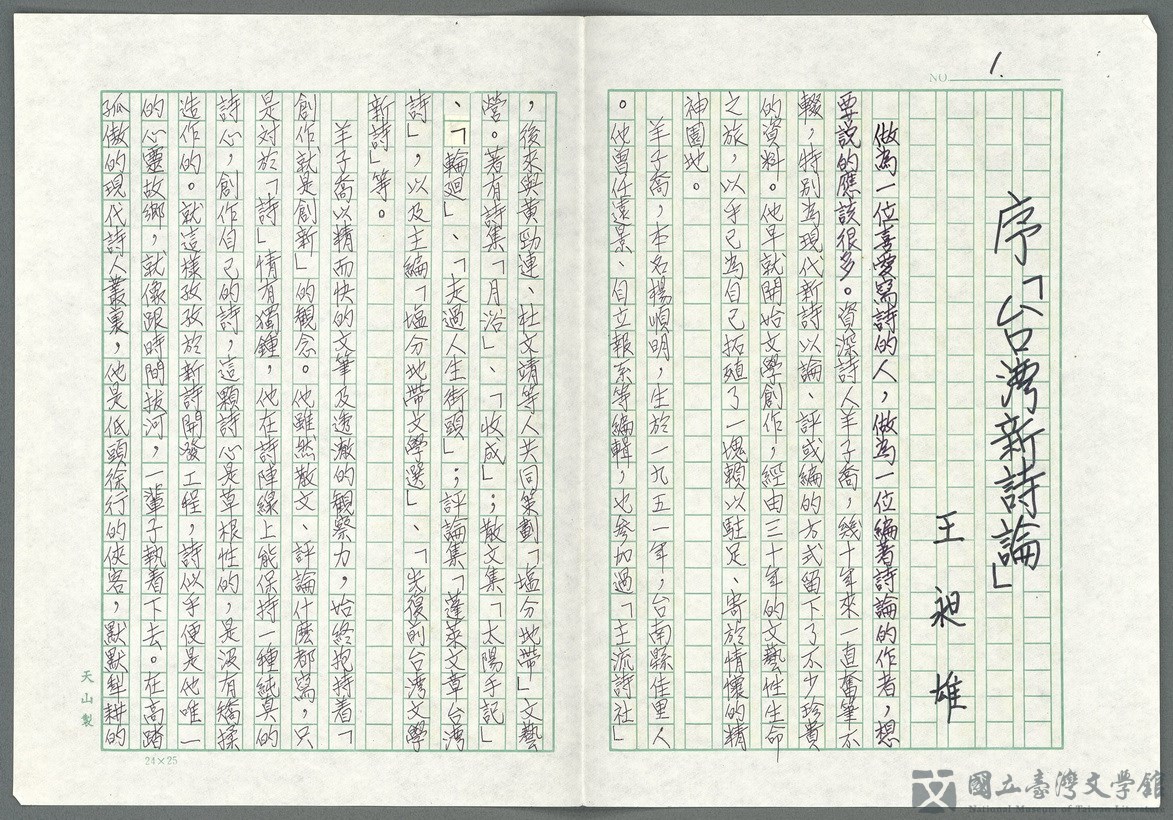 NO 1.
序「台灣新詩論」
王昶雄
做為一位喜愛寫詩的人，做為一位編著詩論的作者，想
要説的應該很多。資深詩人羊子喬，幾十年來一直奮筆不
輟，特別為現代新詩以論、評或編的方式留下了不少珍貴
的資料。他早就開始文學創作，經由三十年的文藝性生命
之旅，以乎已為自己拓殖了一塊賴以駐足、寄於情懷的精
神園地。
羊子喬，本名楊順明，生於一九五一年，台南縣佳里人
。他曾任遠景、自立報系等編輯，也參加過「主流詩社」
，後來與黃勁連、杜文靖等人共同策劃「塩分地帶」文藝
營。著有詩集「月浴」、「收成」；散文集「太陽手記」
、「輪廻」、「走過人生街頭」；評論集「蓬萊文章台灣
詩」，以及主編「塩分地帶文學選」、「光復前台灣文學
新詩」等。
羊子喬以精而快的文筆及透澈的観察力，始終抱持着「
創作就是創新」的観念。他雖然散文、評論什麼都寫，只
是对於「詩」情有獨鍾，他在詩陣線上能保持一種純真的
詩心，創作自己的詩，這顆詩心是草根性的，是沒有矯揉
造作的。就這樣孜孜於新詩開發工程，詩似乎便是他唯一
的心靈故鄉，就像跟時間拔河，一輩子執着下去。在高踏
孤傲的現代詩人叢裏，他是低頭徐行的俠客，默默犁耕的
天山製
24×25
國立臺灣文學館
National Museum of Taiwan Literature